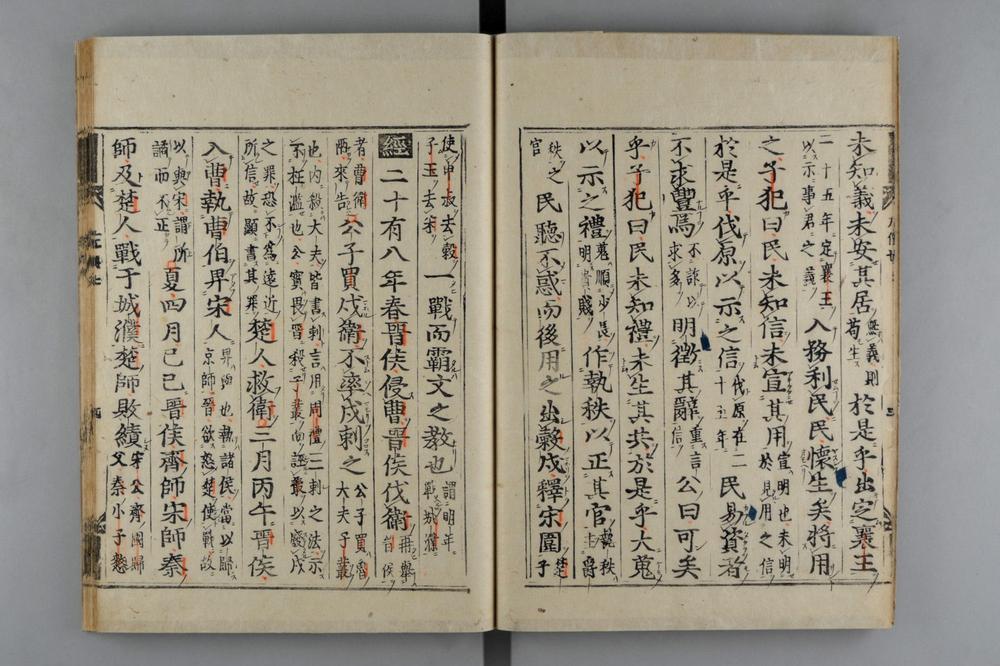 未知義未安其居無義則苟生於是乎出定襄王
二十五年定襄王以示事君之義入務利民民懷生矣將用
之子犯曰民未知信未宣其用宣明也未明於見用之信
於是乎伐原以示之信伐原在二十五年民易資者
不求豐焉不詐以求多明徵其辭重言信公曰可矣
乎子犯曰民未知禮未生其共於是乎大蒐
以示之禮蒐順少長明貴賤作執秩以正其官執秩主爵
秩之官民聽不惑而後用之出穀戍釋宋圍楚子
使申叔去穀子玉去宋一戰而霸文之教也謂明年戰城濮
經二十有八年春晉侯侵曹晉侯伐衛再舉晉侯
者曹衛兩來告公子買戍衛不卒戍刺之公子買魯大夫子叢
也內殺大夫皆書刺言用周禮三刺之法示不枉濫也公實畏晉殺子叢而誣叢以廢戍
之罪恐不為遠近所信故顯書其罪楚人救衛三月丙午晉侯
入曹執曹伯畀宋人畀與也執諸侯當以歸京師晉欲怒楚使戰故
以與宋謂所譎而不正夏四月己巳晉侯齊師宋師秦
師及楚人戰于城濮楚師敗績宋公齊國歸父秦小子憖